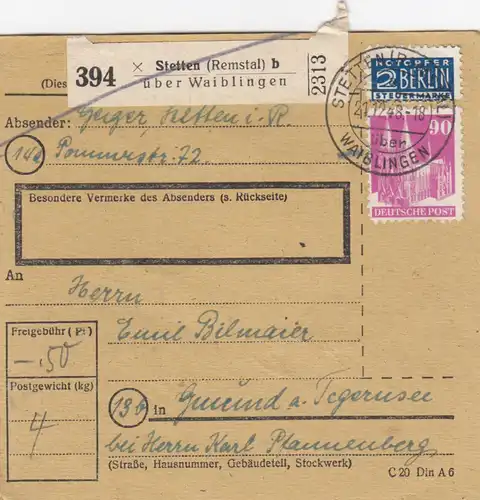 394 × Stetten (Remstal) b
über Waiblingen
2313
NOTOPFER
2 BERLIN
STEUERMARKE
STETTEN (REMSTAL)
über
WAIBLINGEN
90
DEUTSCHE POST
(Dies
Absender: Geiger, Stetten i. R.
14a Pommerstr. 72
Besondere Vermerke des Absenders (s. Rückseite)
An
Herrn
Emil Bilmaier
Freigebühr (Pf)
—.50
Postgewicht (kg)
4
13b in Gmünd a. Tegernsee
bei Herrn Karl Pfannenberg
(Straße, Hausnummer, Gebäudeteil, Stockwerk)
C 20 Din A 6